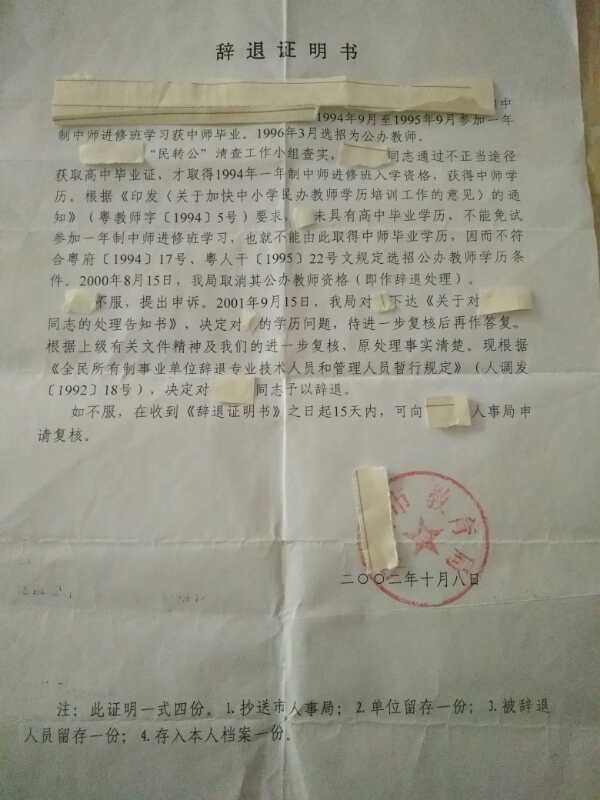 辞退证明书
中
1994年9月至1995年9月参加一年
制中师进修班学习获中师毕业。1996年3月选招为公办教师。
“民转公”清查工作小组查实，同志通过不正当途径
获取高中毕业证，才取得1994年一年制中师进修班入学资格，获得中师学
历。根据《印发〈关于加快中小学民办教师学历培训工作的意见〉的通
知》（粤教师字〔1994〕5号）要求，未具有高中毕业学历，不能免试
参加一年制中师进修班学习，也就不能由此取得中师毕业学历，因而不符
合粤府〔1994〕17号、粤人干〔1995〕22号文规定选招公办教师学历条
件。2000年8月15日，我局取消其公办教师资格（即作辞退处理）。
不服，提出申诉。2001年9月15日，我局对下达《关于对
同志的处理告知书》，决定对的学历问题，待进一步复核后再作答复。
根据上级有关文件精神及我们的进一步复核，原处理事实清楚。现根据
《全民所有制事业单位辞退专业技术人员和管理人员暂行规定》（人调发
〔1992〕18号），决定对同志予以辞退。
如不服，在收到《辞退证明书》之日起15天内，可向人事局申
请复核。
市教育局
二〇〇二年十月八日
注：此证明一式四份。1.抄送市人事局；2.单位留存一份；3.被辞退
人员留存一份；4.存入本人档案一份。